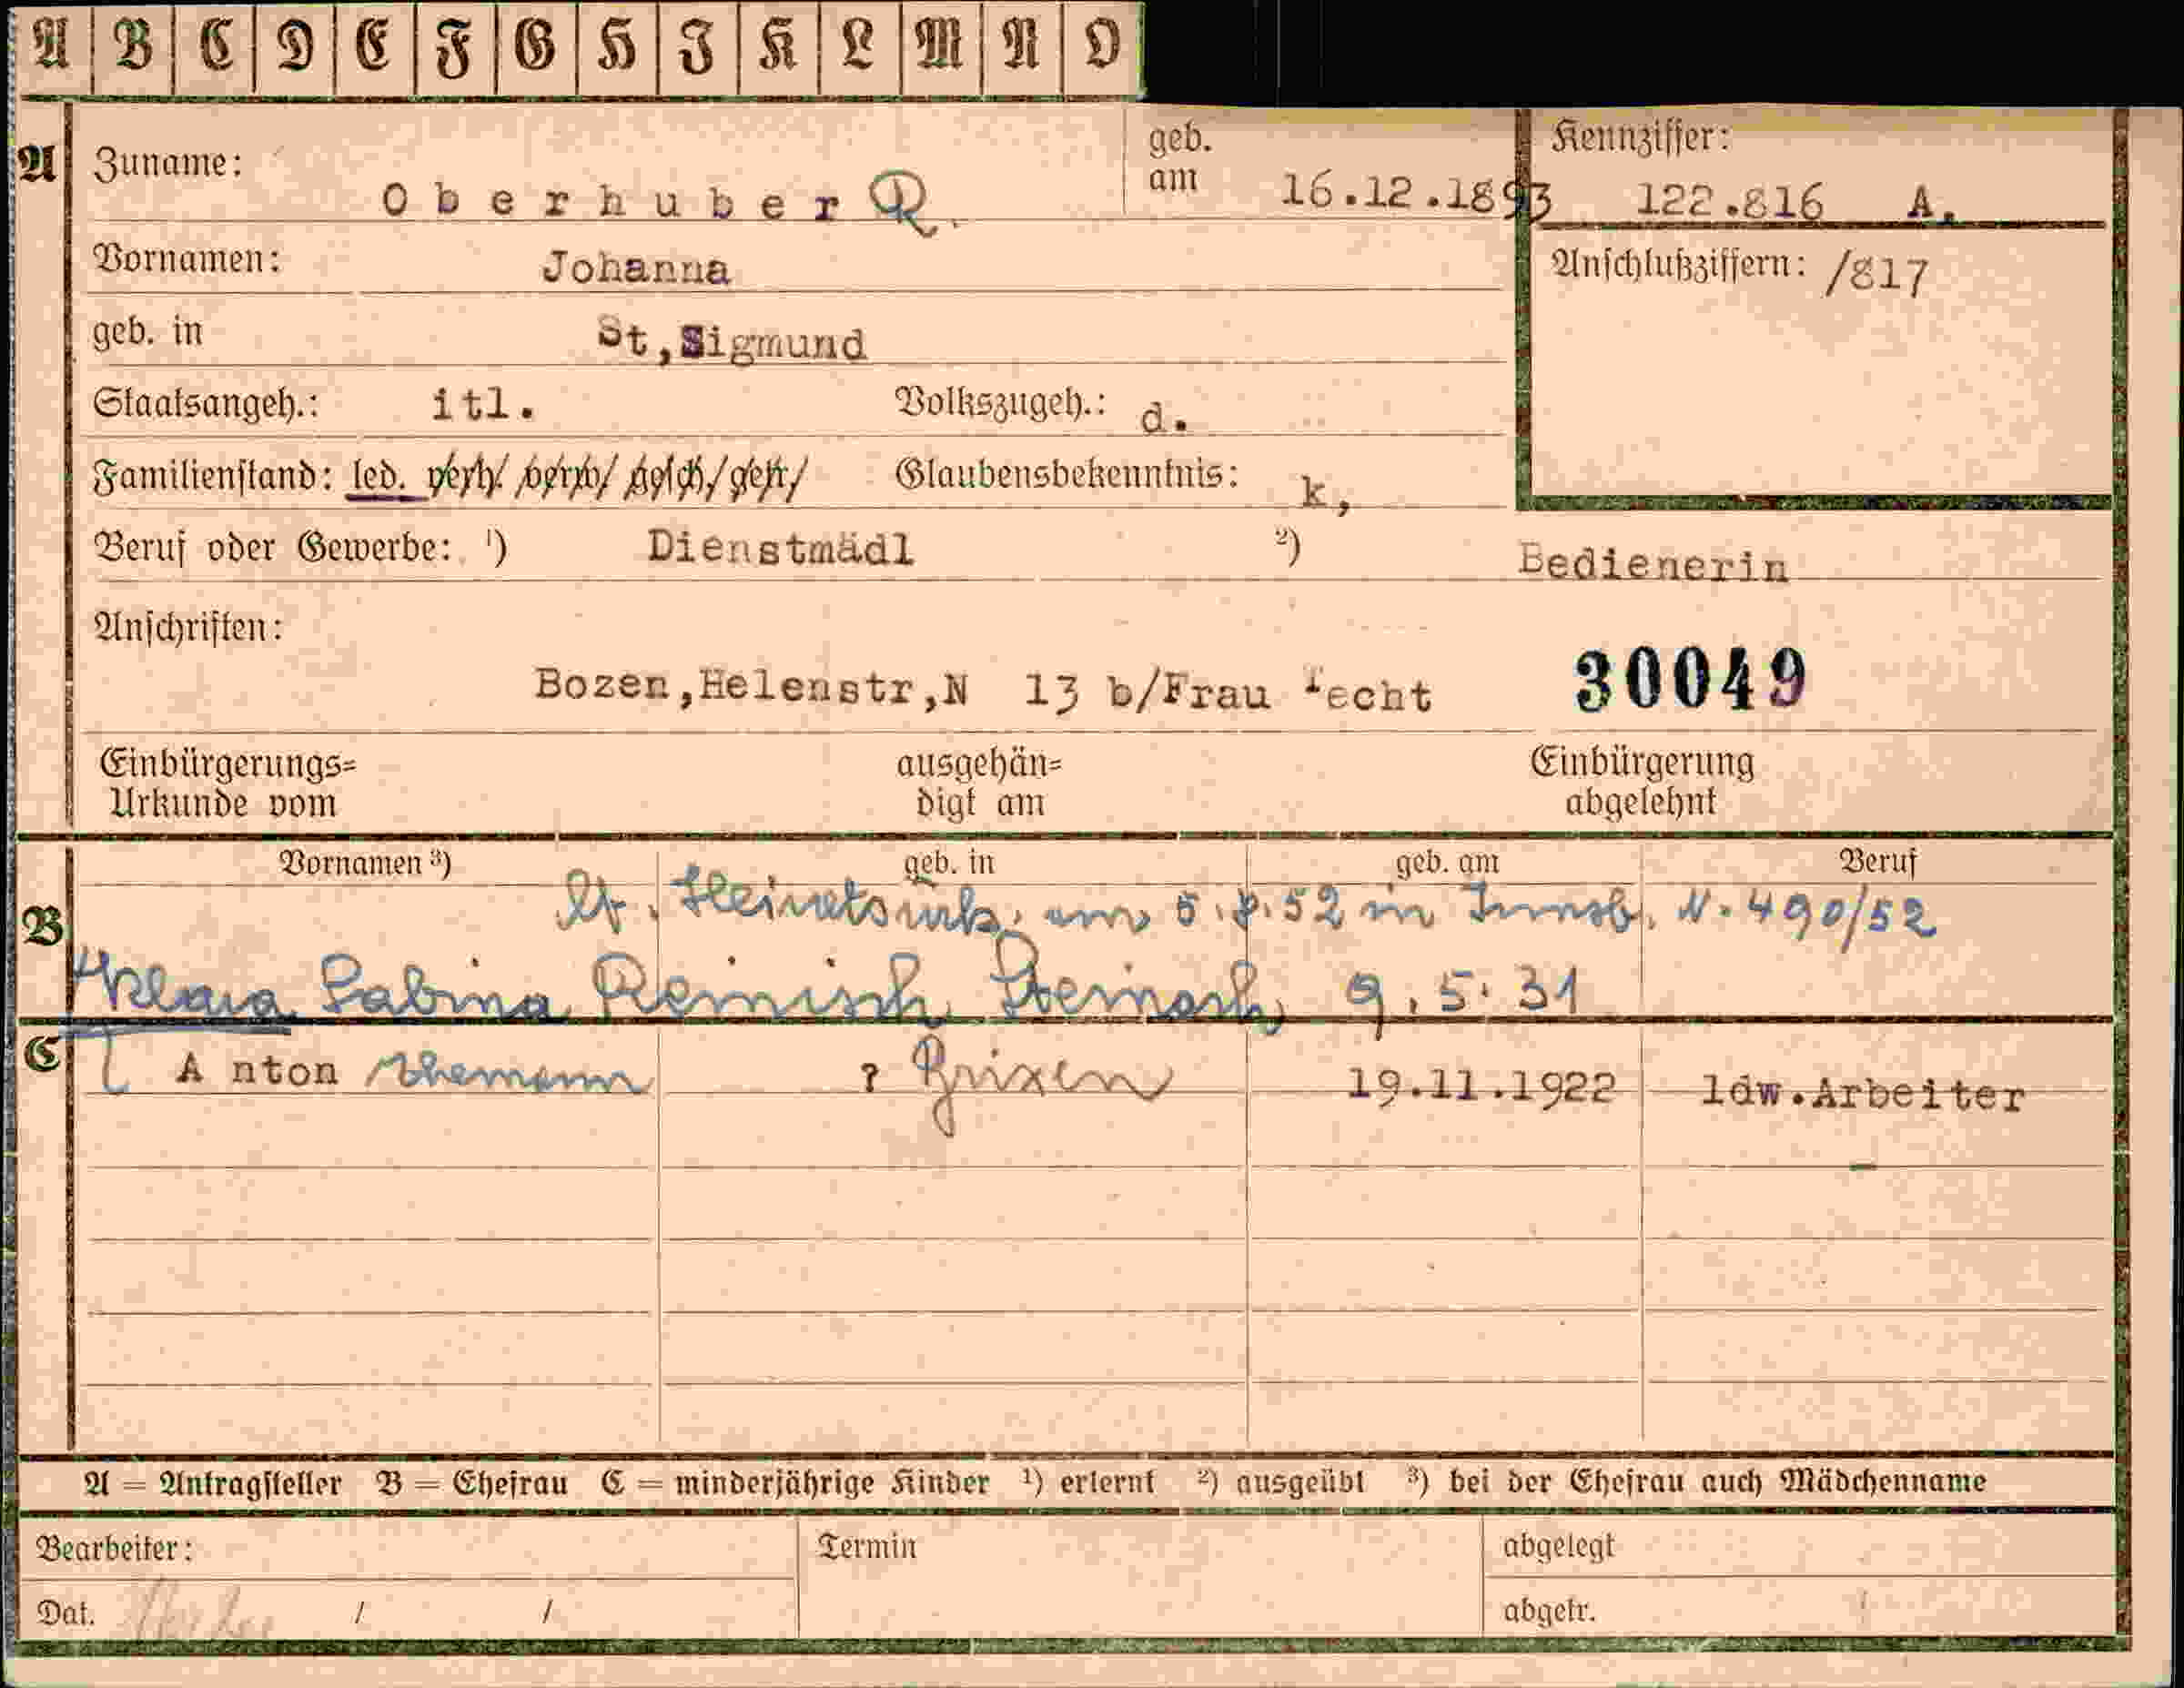 A B C D E F G H I K L M N O
A Zuname: Oberhuber R.
geb. am 16.12.1893
Kennziffer: 122.816 A.
Vornamen: Johanna
Anschlußziffern: /817
geb. in St,Sigmund
Staatsangeh.: itl. Volkszugeh.: d.
Familienstand: led. verh. verw. gesch. getr. Glaubensbekenntnis: k,
Beruf oder Gewerbe: 1) Dienstmädl 2) Bedienerin
Anschriften:
Bozen,Helenstr,N 13 b/Frau 30049
Einbürgerungs= Urkunde vom
ausgehän= digt am
Einbürgerung abgelehnt
B Vornamen 3) geb. in geb. am Beruf
lt. Heiratsurk. am 5.8.52 in Innsb. N. 490/52
Klara Sabina Remisch Steinach 9.5.31
C Anton Ehemann ? Brixen 19.11.1922 ldw.Arbeiter
A = Antragsteller B = Ehefrau C = minderjährige Kinder 1) erlernt 2) ausgeübt 3) bei der Ehefrau auch Mädchenname
Bearbeiter: Termin abgelegt
Dat. / / abgetr.